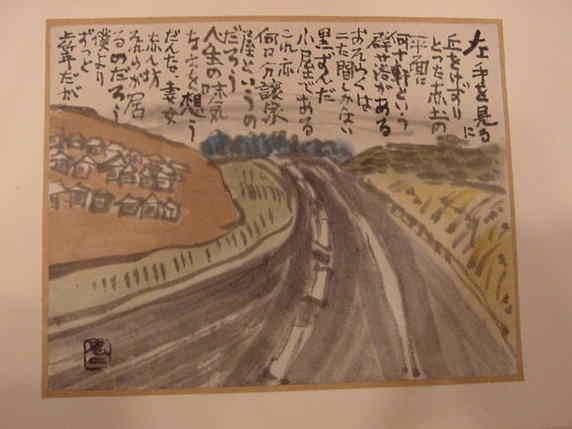 左手を見るに
丘をけずり
とった赤土の
平面に
何十軒という
がある
おそらくは
二た間しかない
黒ずんだ
小屋である
これ亦
分譲家
屋というの
だろう
人生の味気
なさを想う
だんな、妻女
赤ん坊
それらが居
るのだろう
僕より
ずっと
年だが